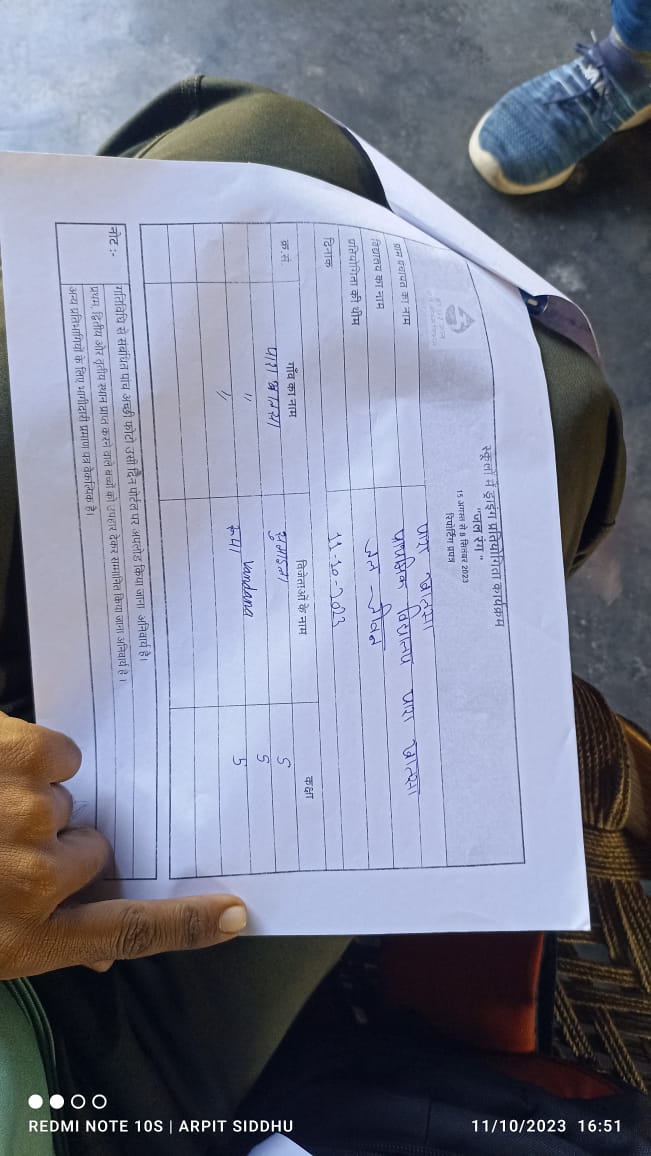 स्कूलों में ड्राइंग प्रतियोगिता कार्यक्रम
"जल रंग"
15 अगस्त से 8 सितंबर 2023
रिपोर्टिंग प्रपत्र
ग्राम पंचायत का नाम पारा खन्दारी
विद्यालय का नाम प्राथमिक विद्यालय पारा
प्रतियोगिता की थीम जल जीवन
दिनांक 11-10-2023
क्र.सं. गाँव का नाम विजेताओं के नाम कक्षा
पारा 5
" Vandana 5
" रूपा 5
नोट :- गतिविधि से संबंधित पांच अच्छी फोटो उसी दिन पोर्टल पर अपलोड किया जाना अनिवार्य है।
प्रथम, द्वितीय और तृतीय स्थान प्राप्त करने वाले बच्चों को उपहार देकर सम्मानित किया जाना अनिवार्य है।
अन्य प्रतिभागियों के लिए भागीदारी प्रमाण पत्र वैकल्पिक है।
REDMI NOTE 10S | ARPIT SIDDHU
11/10/2023 16:51